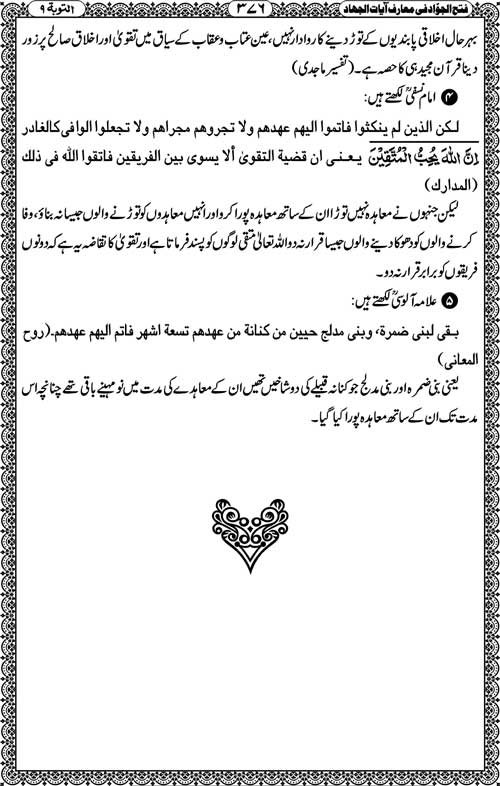 فتح الجوّاد فی معارف آیات الجهاد
۳۷۶
التوبة ۹
بہرحال اخلاقی پابندیوں کے توڑ دینے کا روادار نہیں، عین عتاب و عقاب کے سیاق میں تقویٰ اور اخلاق صالح پر زور
دینا قرآن مجید ہی کا حصہ ہے۔ (تفسیر ماجدی)
۴ امام نسفیؒ لکھتے ہیں:
لكن الذين لم ينكثوا فاتموا اليهم عهدهم ولا تجروهم مجراهم ولا تجعلوا الوافى كالغادر
اِنَّ اللّٰهَ يُحِبُّ الْمُتَّقِيْنَ يعنى ان قضية التقوىٰ ألا يسوى بين الفريقين فاتقوا الله فى ذلك
(المدارك)
لیکن جنہوں نے معاہدہ نہیں توڑا ان کے ساتھ معاہدہ پورا کرو اور انہیں معاہدوں کو توڑنے والوں جیسا نہ بناؤ، وفا
کرنے والوں کو دھوکا دینے والوں جیسا قرار نہ دو اللہ تعالیٰ متقی لوگوں کو پسند فرماتا ہے اور تقویٰ کا تقاضہ یہ ہے کہ دونوں
فریقوں کو برابر قرار نہ دو۔
۵ علامہ آلوسیؒ لکھتے ہیں:
بقى لبنى ضمرة، وبنى مدلج حيين من كنانة من عهدهم تسعة اشهر فاتم اليهم عهدهم۔(روح
المعانى)
یعنی بنی ضمرہ اور بنی مدلج جو کنانہ قبیلے کی دو شاخیں تھیں ان کے معاہدے کی مدت میں نو مہینے باقی تھے چنانچہ اس
مدت تک ان کے ساتھ معاہدہ پورا کیا گیا۔